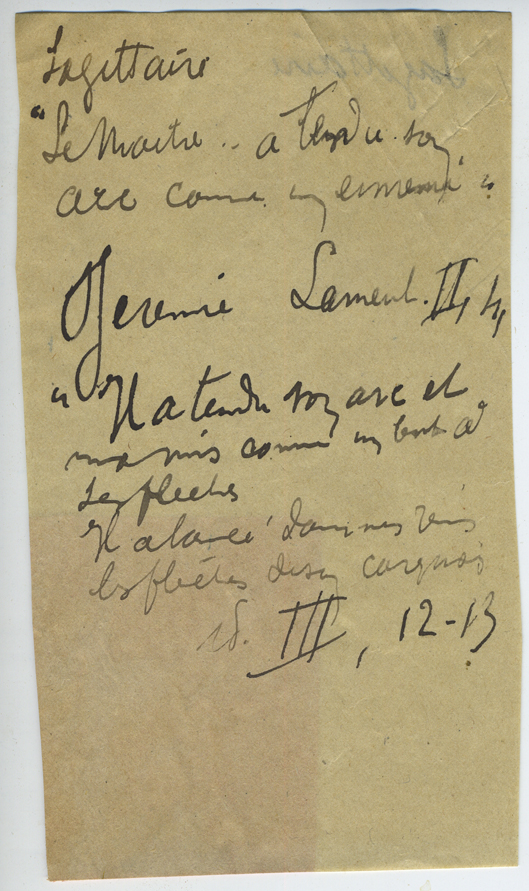 Sagittaire
"Le Maître .. a tendu son
arc comme un ennemi"
Jeremie Lament. II, 4,
"Il a tendu son arc et
m'a mis comme un but à
ses flèches
Il a lancé dans mes reins
les flèches de son carquois
id. III, 12-13